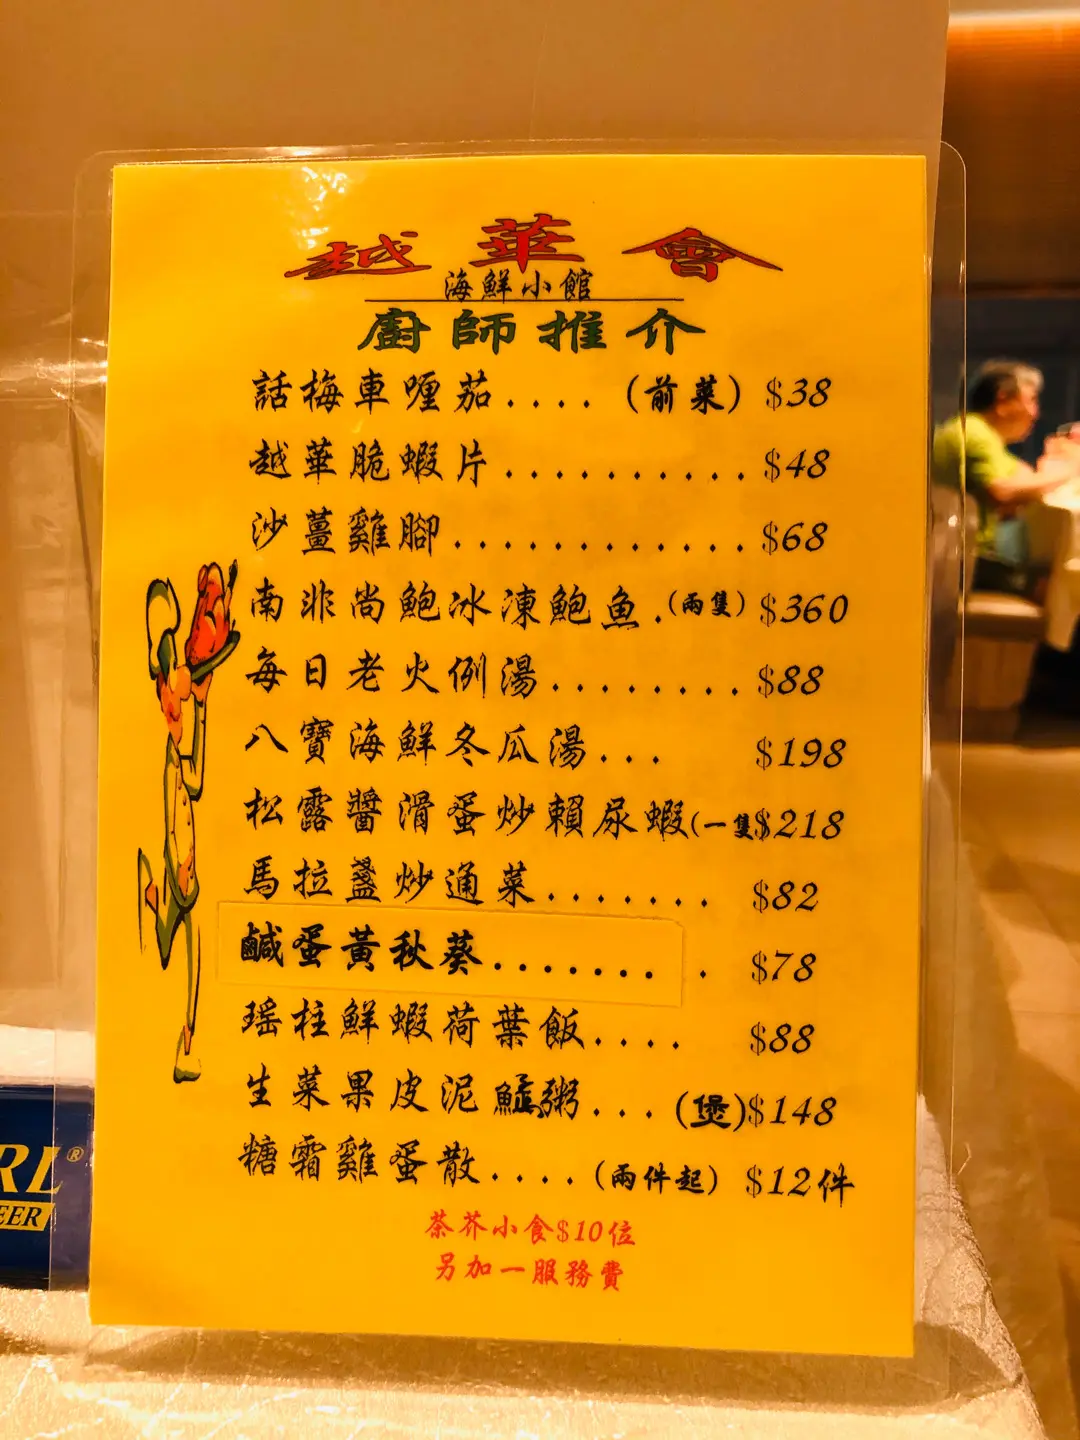 越華會
海鮮小館
廚師推介
話梅車喱茄.... (前菜) $38
越華脆蝦片.......... $48
沙薑雞腳............ $68
南非尚鮑冰凍鮑魚.(兩隻) $360
每日老火例湯........ $88
八寶海鮮冬瓜湯... $198
松露醬滑蛋炒賴尿蝦(一隻$218
馬拉盞炒通菜....... $82
鹹蛋黃秋葵....... . $78
瑤柱鮮蝦荷葉飯.... $88
生菜果皮泥鯭粥... (煲)$148
糖霜雞蛋散....(兩件起) $12件
茶芥小食$10位
另加一服務費
RL®
EER